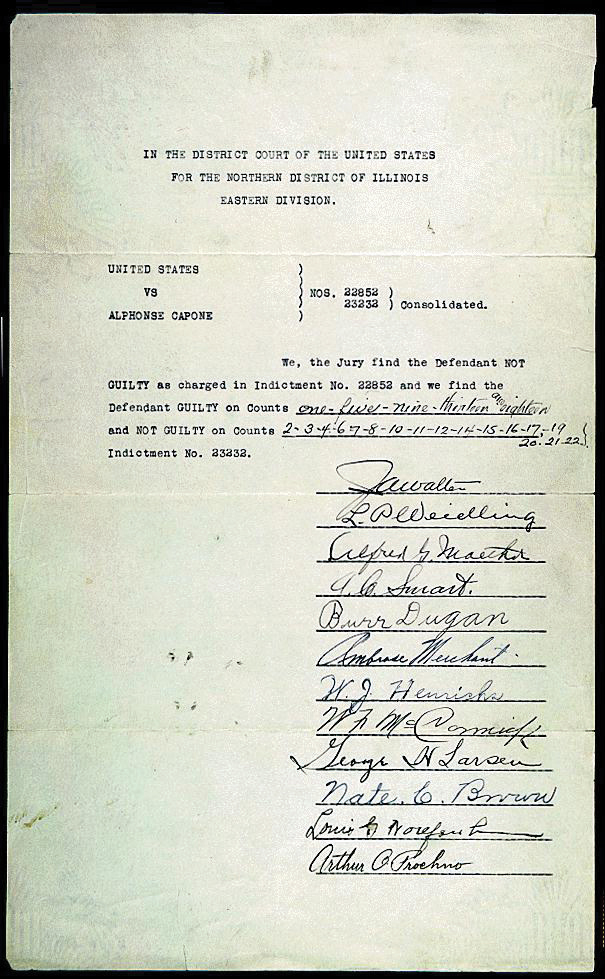 IN THE DISTRICT COURT OF THE UNITED STATES
FOR THE NORTHERN DISTRICT OF ILLINOIS
EASTERN DIVISION.
UNITED STATES )
VS ) NOS. 22852 )
23232 ) Consolidated.
ALPHONSE CAPONE )
We, the Jury find the Defendant NOT
GUILTY as charged in Indictment No. 22852 and we find the
Defendant GUILTY on Counts one-five-nine-thirteen and eighteen
and NOT GUILTY on Counts 2-3-4-6-7-8-10-11-12-14-15-16-17-19
20-21-22
Indictment No. 23232.
L. P. Weidling
A. C. Smart.
Burr Dugan
Ambrose Merchant
W. J. Henrichs
W F McCormick
George H Larsen
Nate. C. Brown
Louis G
Arthur O. Prochno